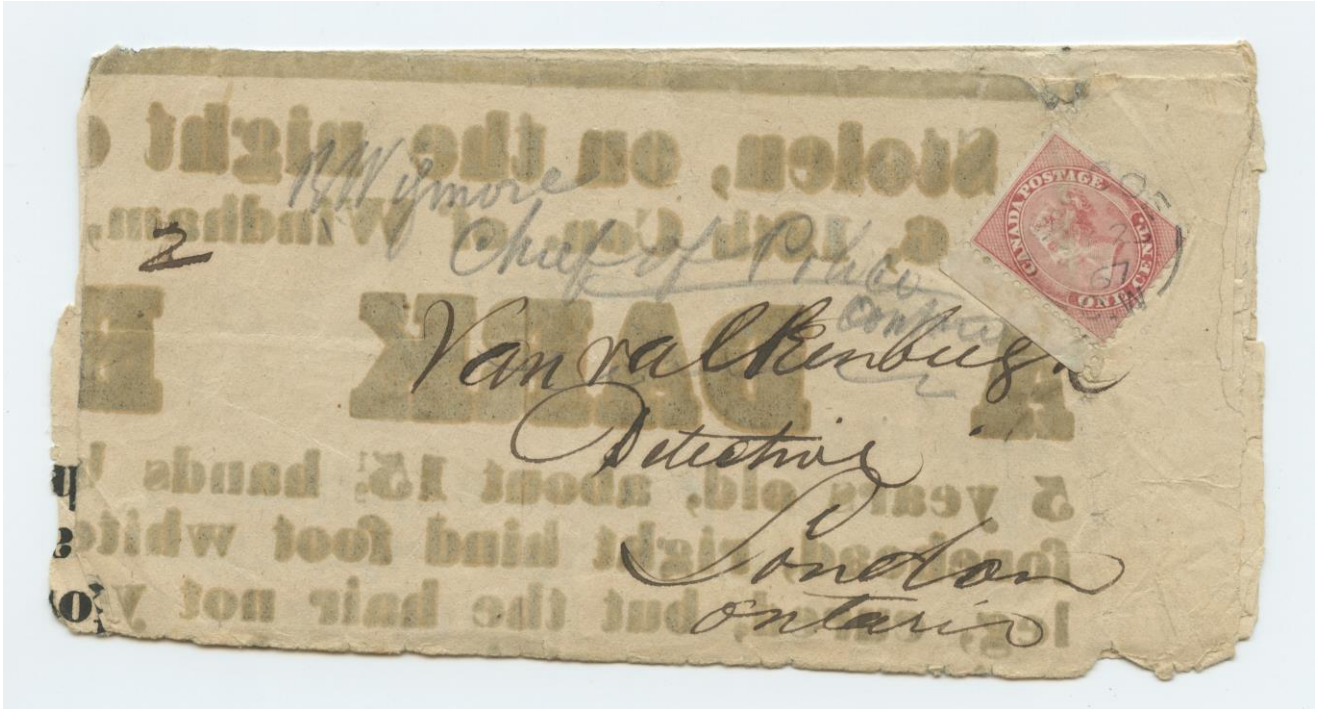 Stolen, on the night
6, 12th Con. of Windham,
A DARK
5 years old, about 15½ hands
forehead, right hind foot white
leg, cured, but the hair not y
B Wymore
Chief of Police
2
Vanvalkenburgh
Detective
London
Ontario
CANADA POSTAGE
ONE CENT.
67